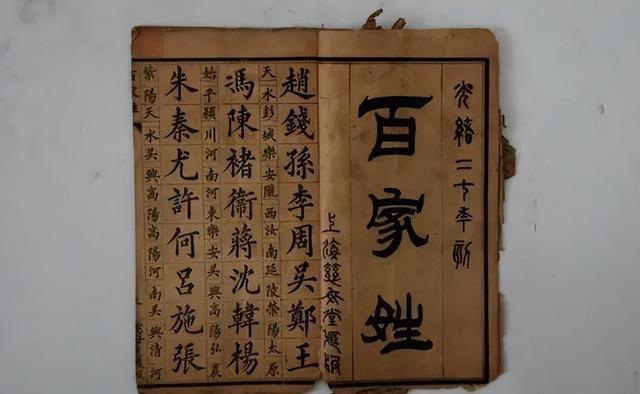 光緒二七年
百家姓
上海堂版
趙錢孫李周吳鄭王
天水彭城樂安隴西汝南延陵滎陽太原
馮陳褚衞蔣沈韓楊
始平潁川河南河東樂安吳興陽弘農
朱秦尤許何呂施張
陽天水吳興高陽陽河吳興清河